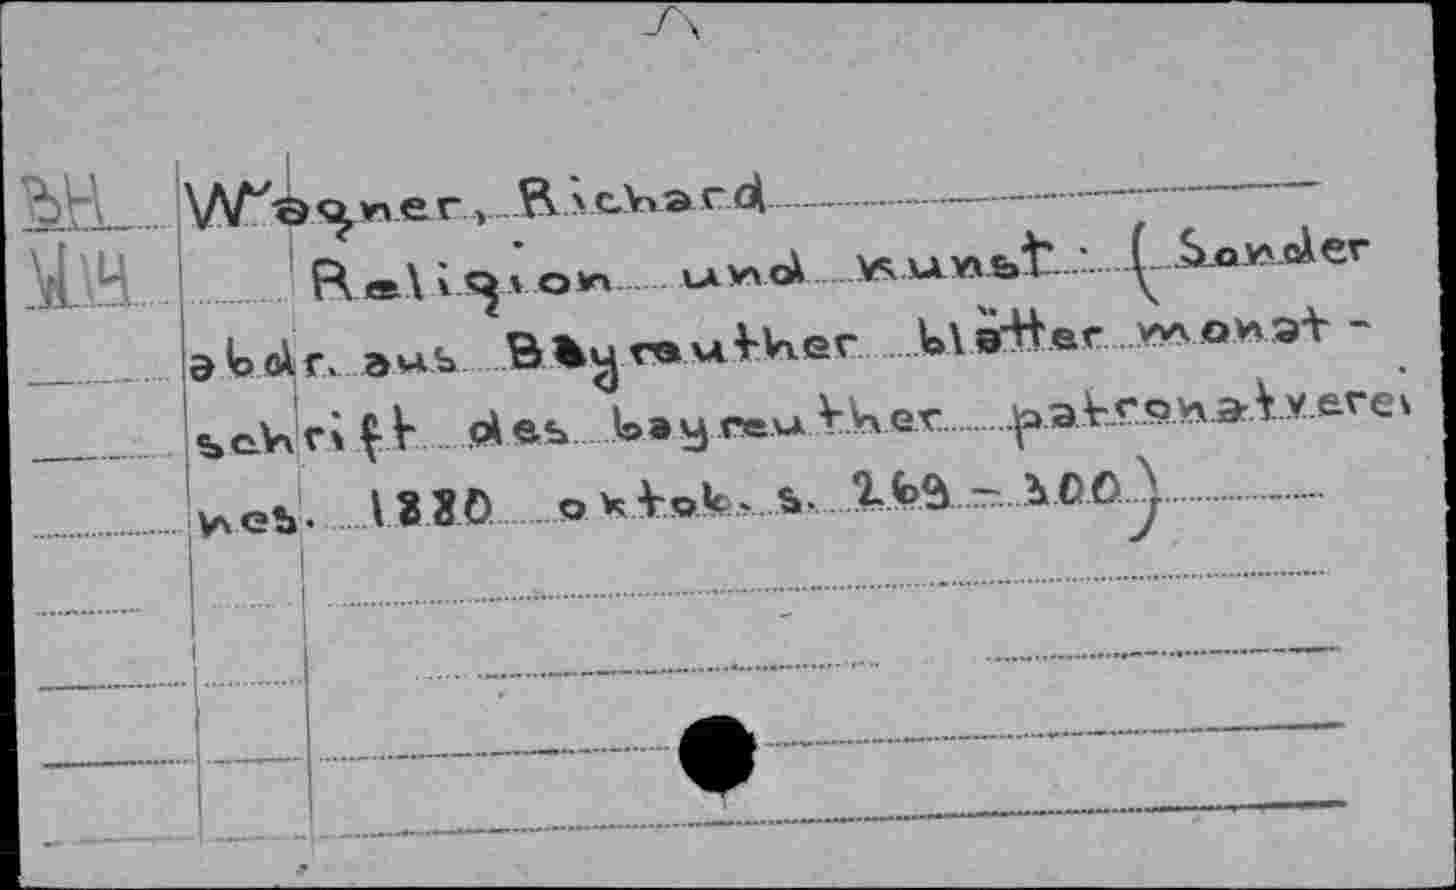 Wagner, Richard
Religion und kunst. (Sonder
abdr. aus Bayreuther blätter monat-
schrift des bayreuther patronatverei
nes. 1880 oktob. s. 269-300)